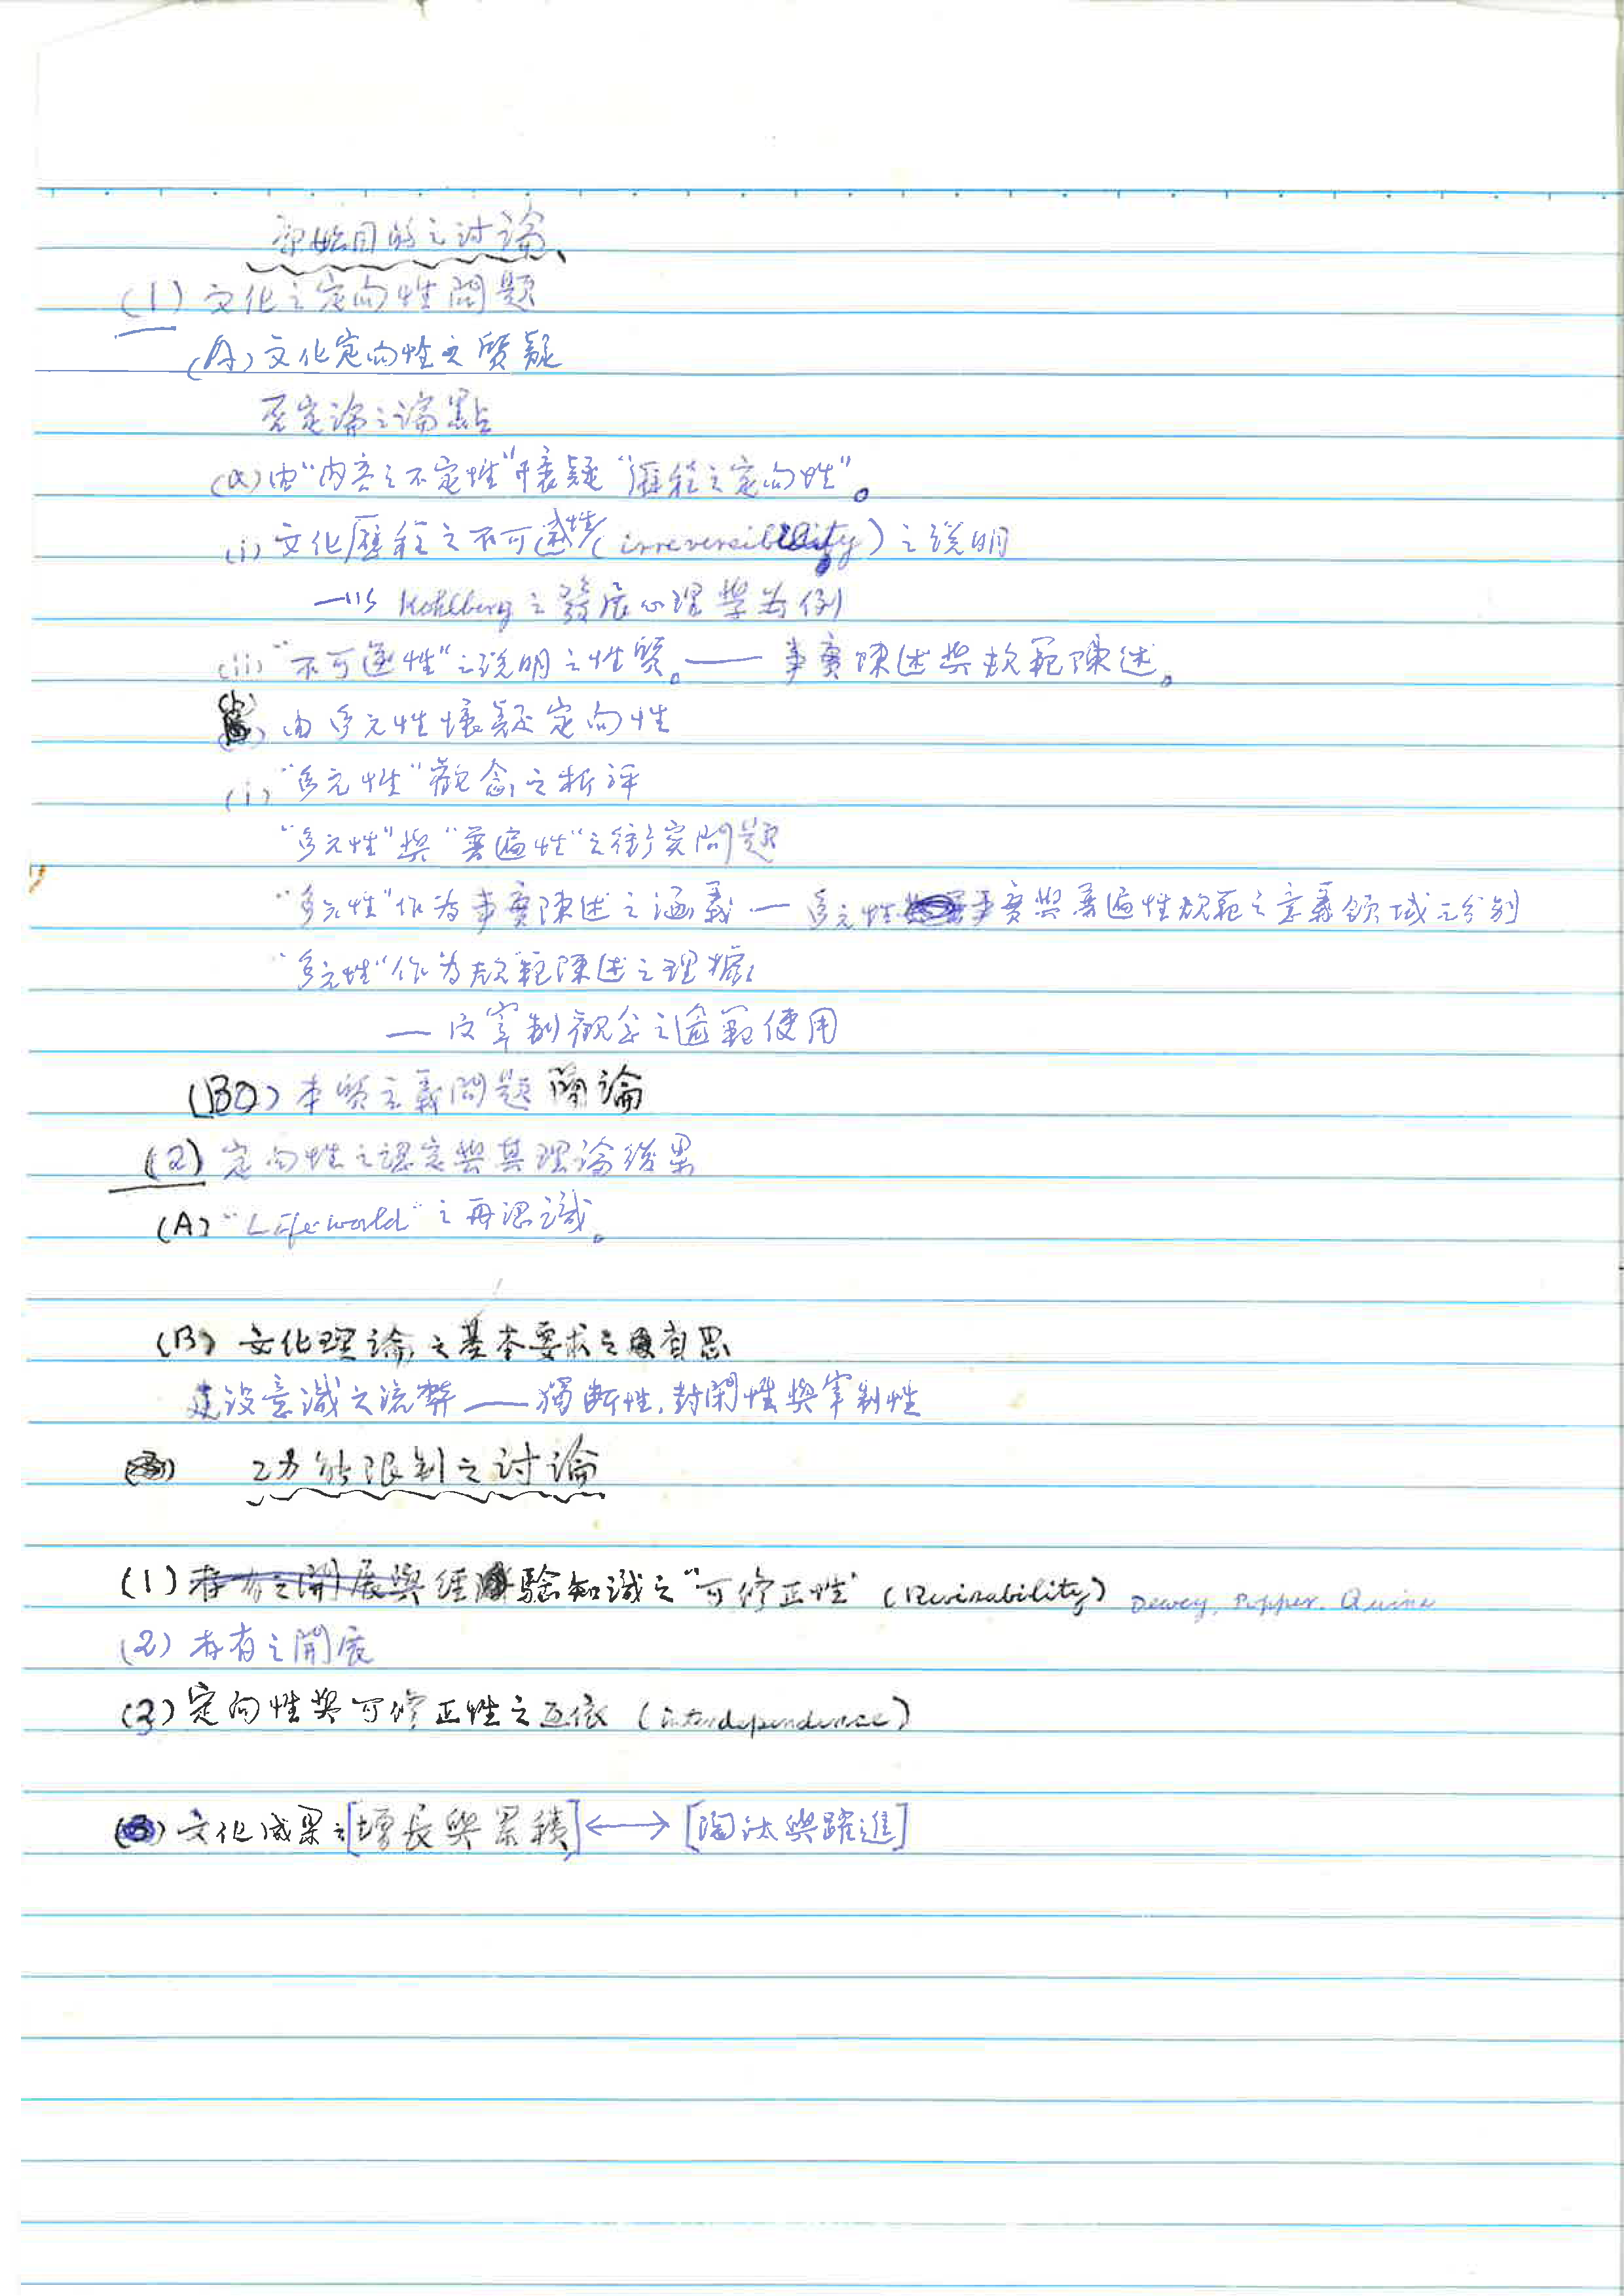 原始目的之討論
(1) 文化之定向性問題
(A) 文化定向性之質疑
否定論之論點
(a) 由“內容之不定性”懷疑“歷程之定向性”。
(i) 文化歷程之不可逆性(irreversibility)之說明
—以 Kohlberg 之發展心理學為例
(ii) “不可逆性”之說明之性質。—— 事實陳述與規範陳述。
(b) 由多元性懷疑定向性
(i) “多元性”觀念之析評
“多元性”與“普遍性”之衝突問題
“多元性”作為事實陳述之涵義 — 多元性事實與普遍性規範之意義領域之分別
“多元性”作為規範陳述之理據
— 反宰制觀念之逾範使用
(B) 本質主義問題簡論
(2) 定向性之認定與其理論後果
(A) “Life-world”之再認識。
(B) 文化理論之基本要求之省思
建設意識之流弊 —— 獨斷性,封閉性與宰制性
功能限制之討論
(1) 存有之開展與經驗知識之“可修正性” (Revisability) Dewey, Popper, Quine
(2) 存有之開展
(3) 定向性與可修正性之互依 (interdependence)
文化成果之[增長與累積]←→[淘汰與躍進]